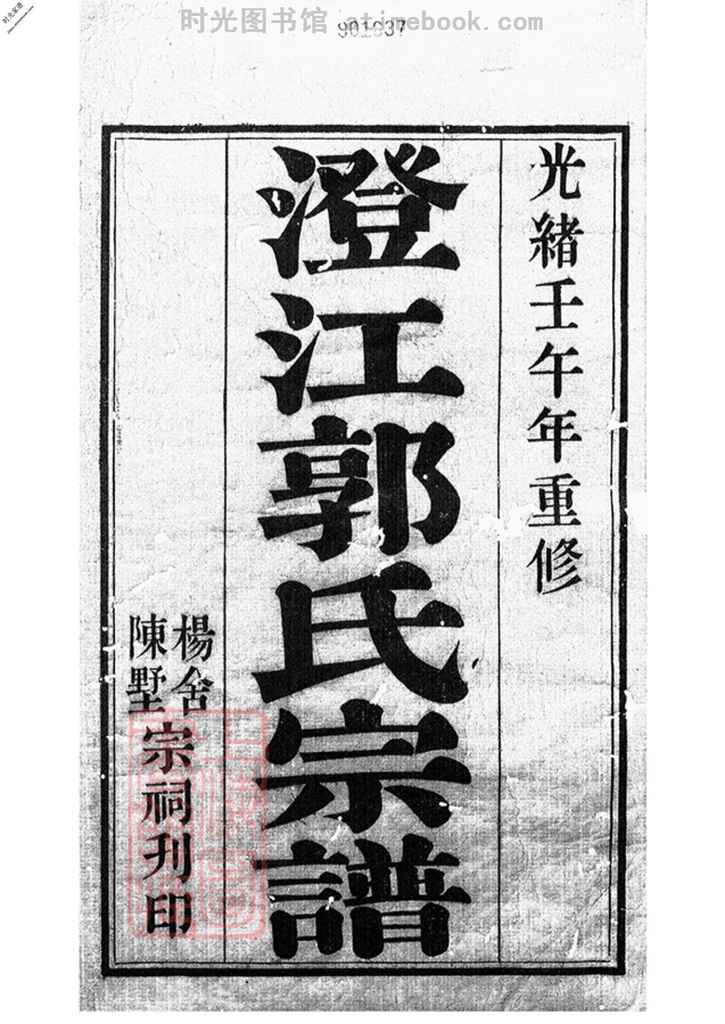 时光图书馆 atimebook.com
901037
光緒壬午年重修
澄江郭氏宗譜
楊舍
陳墅
宗祠刊印